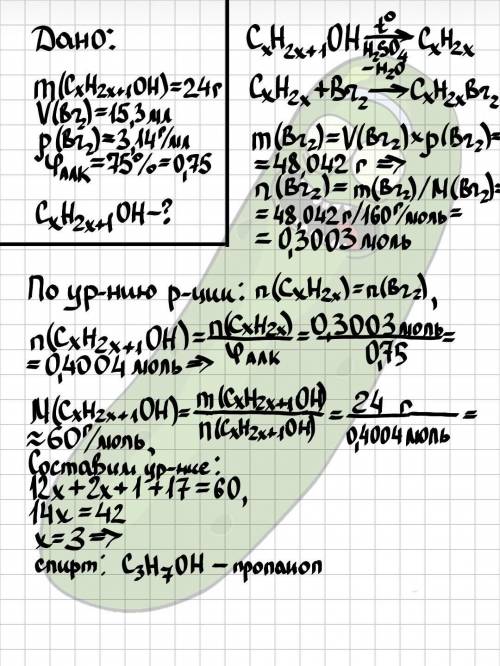 Дано:
m(CxH2x+1OH)=24г
V(Br2)=15,3мл
ρ(Br2)=3,14г/мл
φалк=75%=0,75
CxH2x+1OH-?
CxH2x+1OH t° H2SO4 → -H2O CxH2x
CxH2x+Br2→CxH2xBr2
m(Br2)=V(Br2)×ρ(Br2)=
=48,042 г =>
n(Br2)=m(Br2)/M(Br2)=
=48,042г/160г/моль=
=0,3003моль
По ур-нию р-ции: n(CxH2x)=n(Br2),
n(CxH2x+1OH)=n(CxH2x)/φалк=0,3003моль/0,75=
=0,4004 моль=>
M(CxH2x+1OH)=m(CxH2x+1OH)/n(CxH2x+1OH)=24 г/0,4004моль=
≈60г/моль,
Составим ур-ние:
12x+2x+1+17=60,
14x=42
x=3=>
спирт: C3H7OH-пропанол